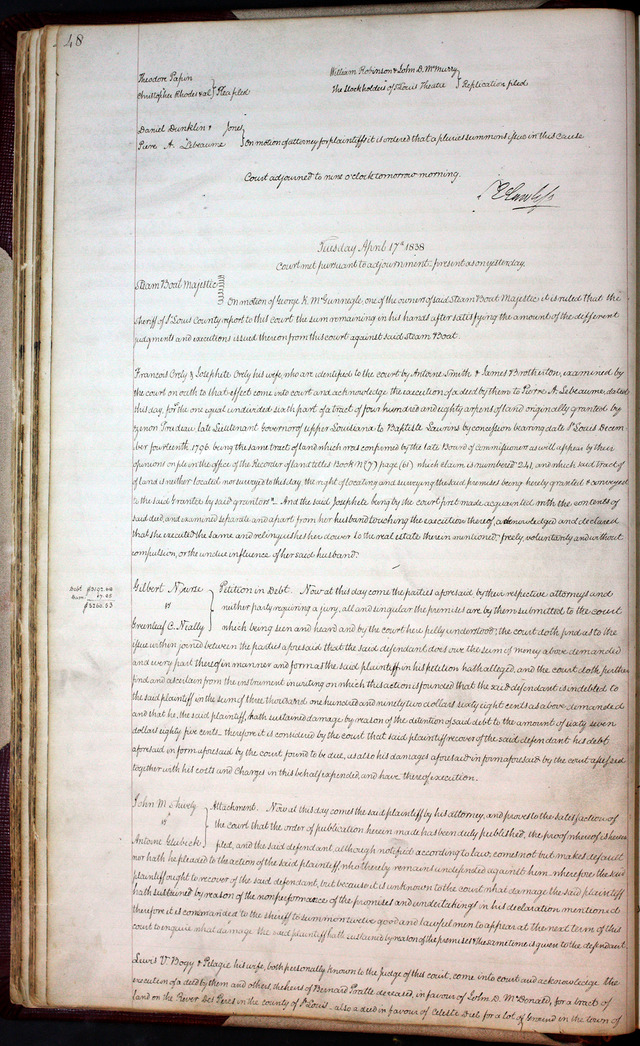 48
Theodore Papin
Christopher Rhodes & al } Plea filed
William Robinson & John D. McMurry
The Stockholders of St Louis Theatre } Replication filed
Daniel Dunklin & Jones
Pierre A. Lebeaume } On motion of attorney for plaintiffs it is ordered that a pluries summons issue in this cause
Court adjourned to nine o'clock tomorrow morning.
Tuesday April 17th 1838
Court met pursuant to adjournment - present as on yesterday.
Steam Boat Majestic
On motion of George K. McGunnegle, one of the owners of said Steam Boat Majestic, it is ruled that the
Sheriff of St Louis County report to this court the sum remaining in his hands after satisfying the amount of the different
judgments and executions issued thereon from this court against said Steam Boat
Francois Orely & Josephete Orely his wife, who are identified to the court by Antoine Smith & James Brotherton, examined by
the court on oath to that effect come into court and acknowledge the execution of a deed by them to Pierre A. Lebeaume, dated
this day, for the one equal undivided sixth part of a tract of four hundred and eighty arpens of land originally granted by
Zenon Trudeau late Lieutenant Governor of upper Louisiana to Baptiste Lawins by concession bearing date St Louis Decem-
ber fourteenth 1796. being the same tract of land which was confirmed by the late Board of Commissioners as will appear by their
opinions on file in the office of the Recorder of land titles Book No (7) page (61) which claim is numbered 241, and which said tract of
of land is neither located nor surveyed to this day, the right of locating and surveying the said premises being hereby granted & conveyed
to the said Grantee by said grantors - And the said Josephete being by the court first made acquainted with the contents of
said deed and examined separate and apart from her husband touching the execution thereof, acknowledged and declared
that she executed the same and relinquishes her dower to the real estate therein mentioned - freely, voluntarily and without
compulsion, or the undue influence of her said husband.
Debt $3192.68
Dam. 67.85
$3260.53
Gilbert Nourse
vs
Greenleaf C. Neally
Petition in Debt. Now at this day come the parties aforesaid by their respective attorneys and
neither party requiring a jury, all and singular the premises are by them submitted to the court
which being seen and heard and by the court here fully understood; the court doth find as to the
issue within joined between the parties aforesaid that the said defendant does owe the sum of money above demanded
and every part thereof in manner and form as the said plaintiff in his petition hath alleged, and the court doth further
find and ascertain from the instrument in writing on which this action is founded that the said defendant is indebted to
the said plaintiff in the sum of three thousand one hundred and ninety two dollars sixty eight cents as above demanded
and that he, the said plaintiff, hath sustained damage by reason of the detention of said debt to the amount of sixty seven
dollars eighty five cents - therefore it is considered by the court that said plaintiff recover of the said defendant his debt
aforesaid in form aforesaid by the court found to be due, as also his damages aforesaid in form aforesaid by the court assessed
together with his costs and charges in this behalf expended, and have thereof execution.
John M. Shively
vs
Antoine
Attachment. Now at this day comes the said plaintiff by his attorney, and proves to the satisfaction of
the court that the order of publication herein made has been duly published, the proof whereof is herein
filed, and the said defendant, although notified according to law, comes not but makes default
nor hath he pleaded to the action of the said plaintiff, who thereby remains undefended against him - wherefore the said
plaintiff ought to recover of the said defendant, but because it is unknown to the court what damage the said plaintiff
hath sustained by reason of the nonperformance of the promises and undertakings in his declaration mentioned
therefore it is commanded to the sheriff to summon twelve good and lawful men to appear at the next term of this
court to enquire what damage the said plaintiff hath sustained by reason of the premises & the same time is given to the defendant.
Lewis V. Bogy & Pelagie his wife, both personally known to the Judge of this court, come into court and acknowledge the
execution of a deed by them and others, the heirs of Bernard Pratte deceased, in favour of John D. McDonald, for a tract of
land on the River Des Peres in the county of St Louis - also a deed in favour of Celeste Diel for a lot of Ground in the town of